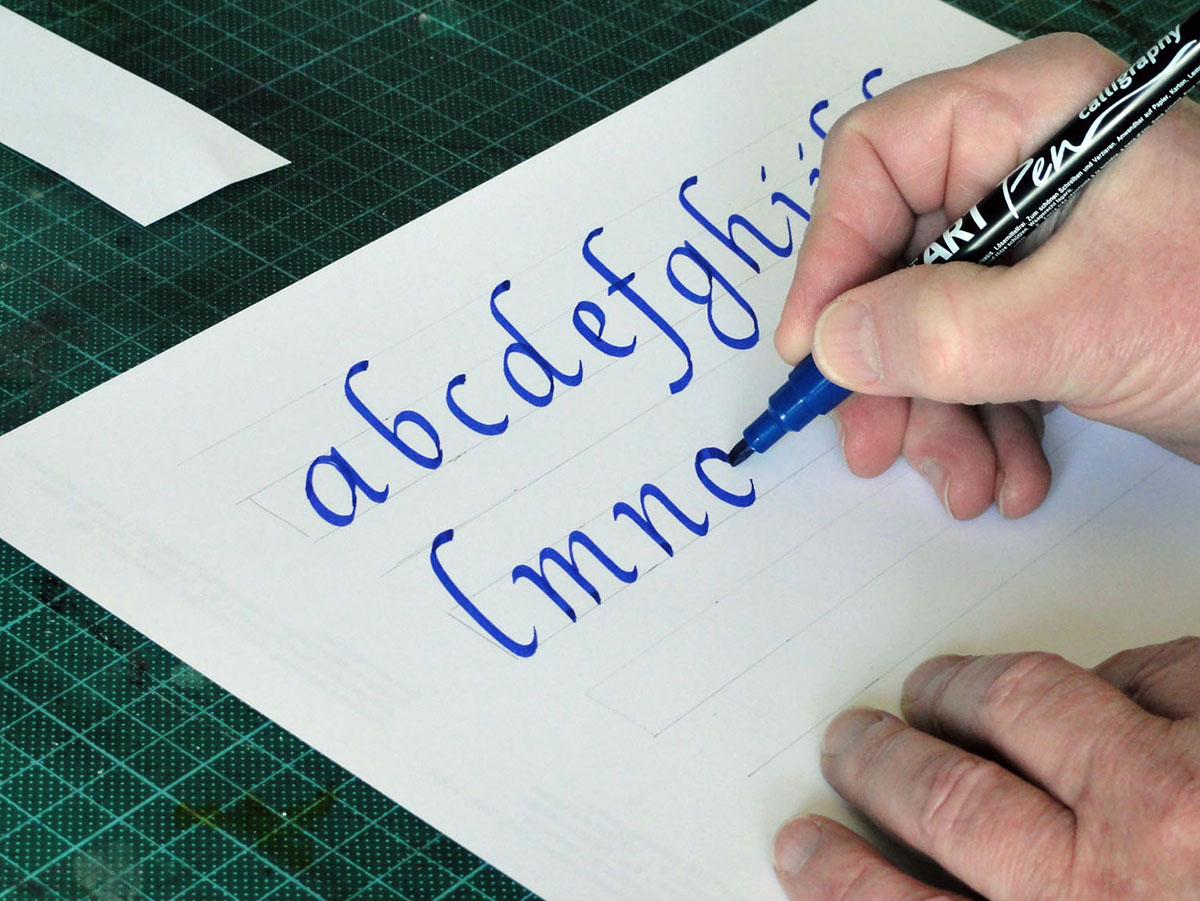 abcdefghij
lmno
ART Pen
calligraphy
Lösemittelfrei. Zum schönen Schreiben und Verzieren. Anwendbar auf Papier, Karton,
schützen. Waagerecht lagern.